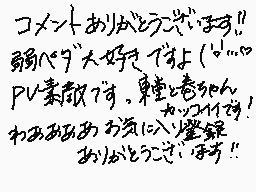 コメントありがとうございます!!
弱ペダ大好きですよ(
PV素敵です。東堂と巻ちゃん
カッコイイです!
わあああああお気に入り登録
ありがとうございます!!